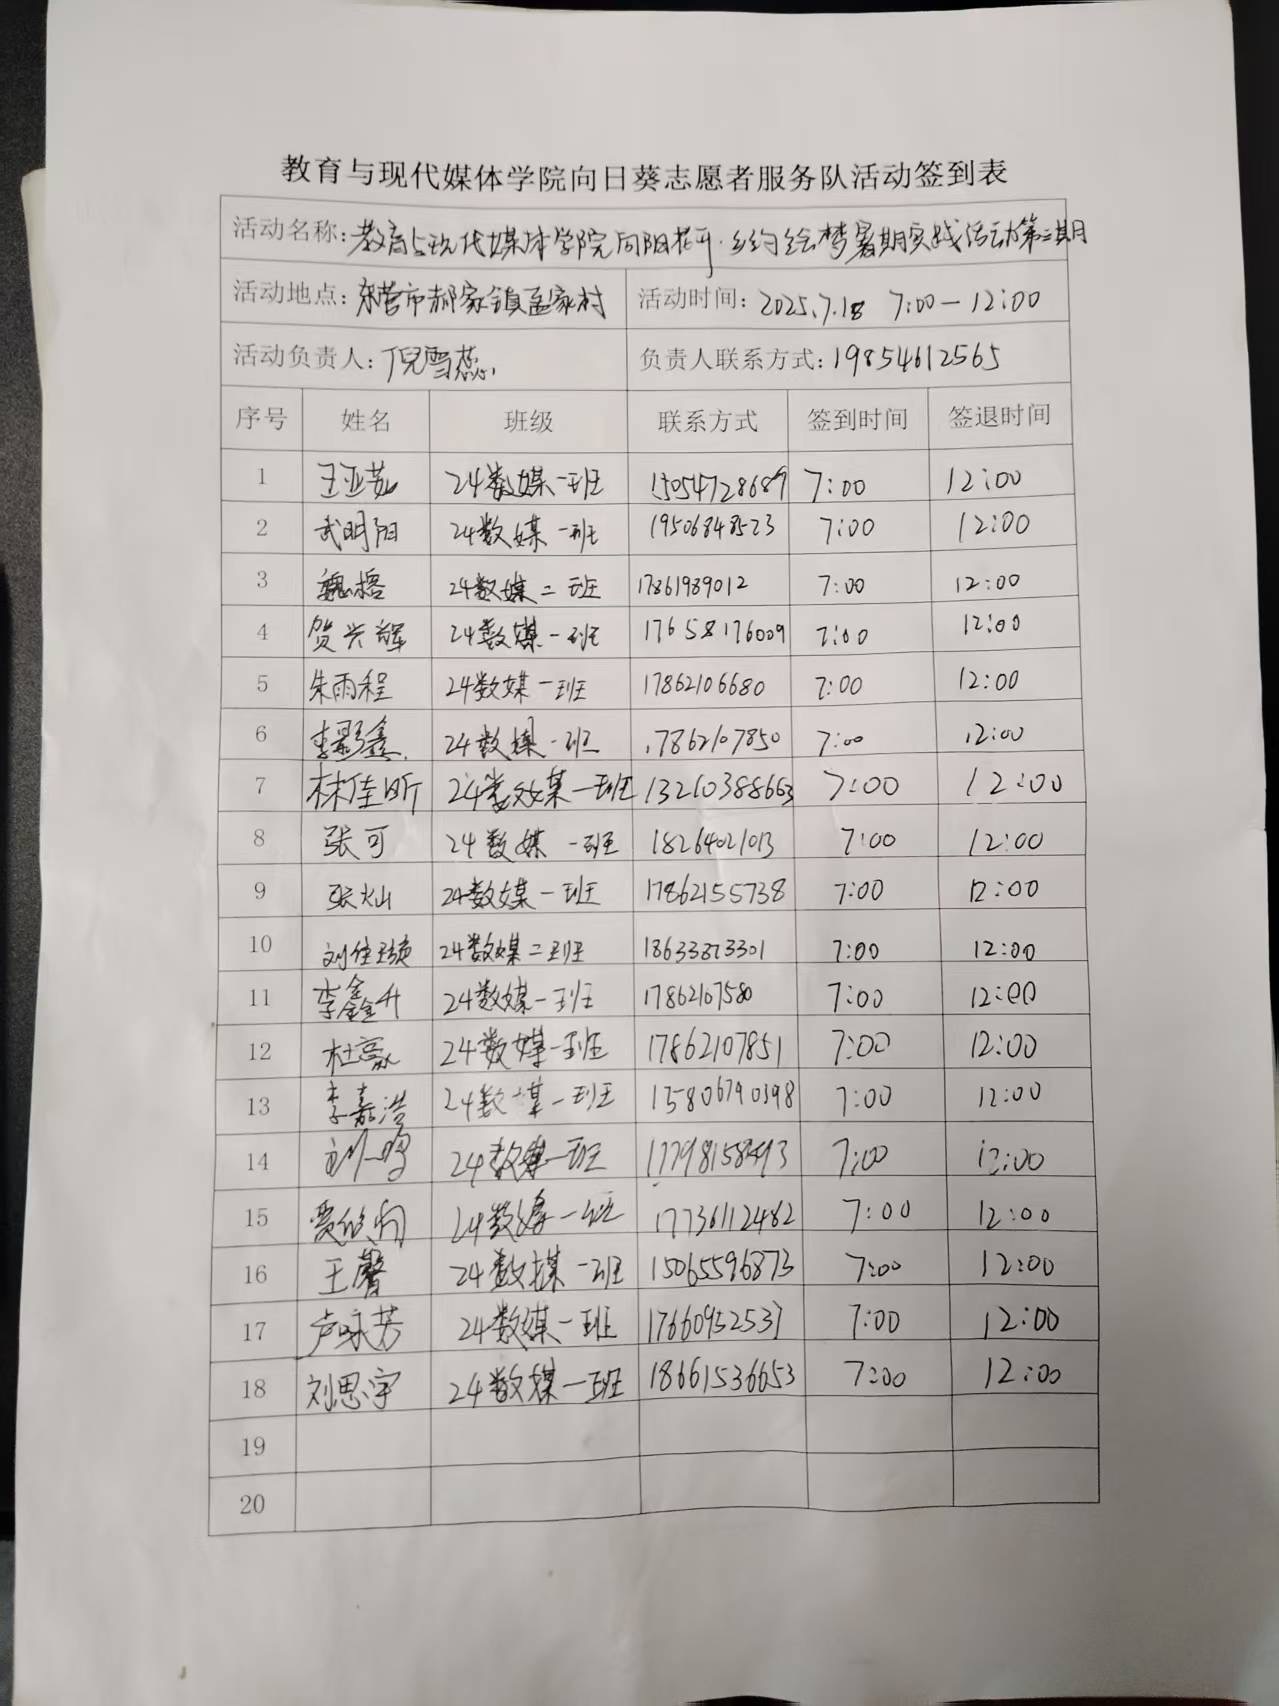 教育与现代媒体学院向日葵志愿者服务队活动签到表
活动名称：教育与现代媒体学院向阳花开·乡约绘梦暑期实践活动第二期
活动地点：东营市郝家镇孟家村 活动时间：2025.7.18 7:00—12:00
活动负责人：倪雪蕊 负责人联系方式：19854612565
序号 姓名 班级 联系方式 签到时间 签退时间
1 王亚茹 24数媒一班 15054728689 7:00 12:00
2 武明阳 24数媒一班 19506848523 7:00 12:00
3 魏榕 24数媒二班 17861989012 7:00 12:00
4 贺兴辉 24数媒一班 17658176009 7:00 12:00
5 朱雨程 24数媒一班 17862106680 7:00 12:00
6 24数媒一班 17862107850 7:00 12:00
7 林佳昕 24数媒一班 13210388663 7:00 12:00
8 张可 24数媒一班 18264021013 7:00 12:00
9 张灿 24数媒一班 17862155738 7:00 12:00
10 刘佳琰 24数媒二班 18633873301 7:00 12:00
11 李鑫升 24数媒一班 17862107580 7:00 12:00
12 杜豪 24数媒一班 17862107851 7:00 12:00
13 李嘉浩 24数媒一班 15806790398 7:00 12:00
14 刘一鸣 24数媒一班 7:00 12:00
15 24数媒一班 17736112482 7:00 12:00
16 王馨 24数媒一班 15065596873 7:00 12:00
17 卢咏芳 24数媒一班 17660952537 7:00 12:00
18 刘思宇 24数媒一班 18661536653 7:00 12:00
19
20